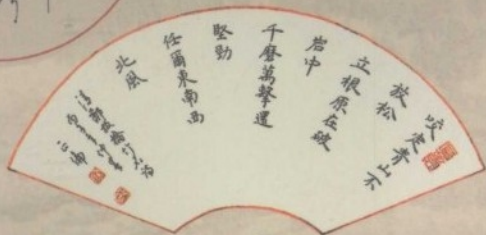 咬定青山不
放松
立根原在破
岩中
千磨萬擊還
堅勁
任爾東南西
北風
清鄭板橋竹石詩